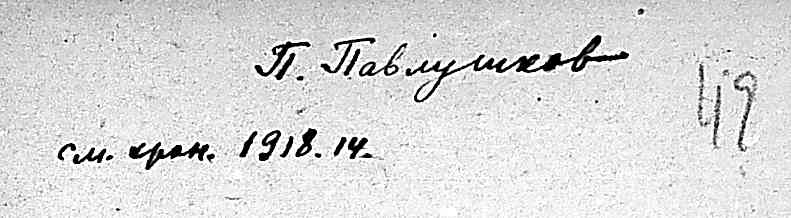 П. Павлушков
49
см. хрон. 1918. 14.